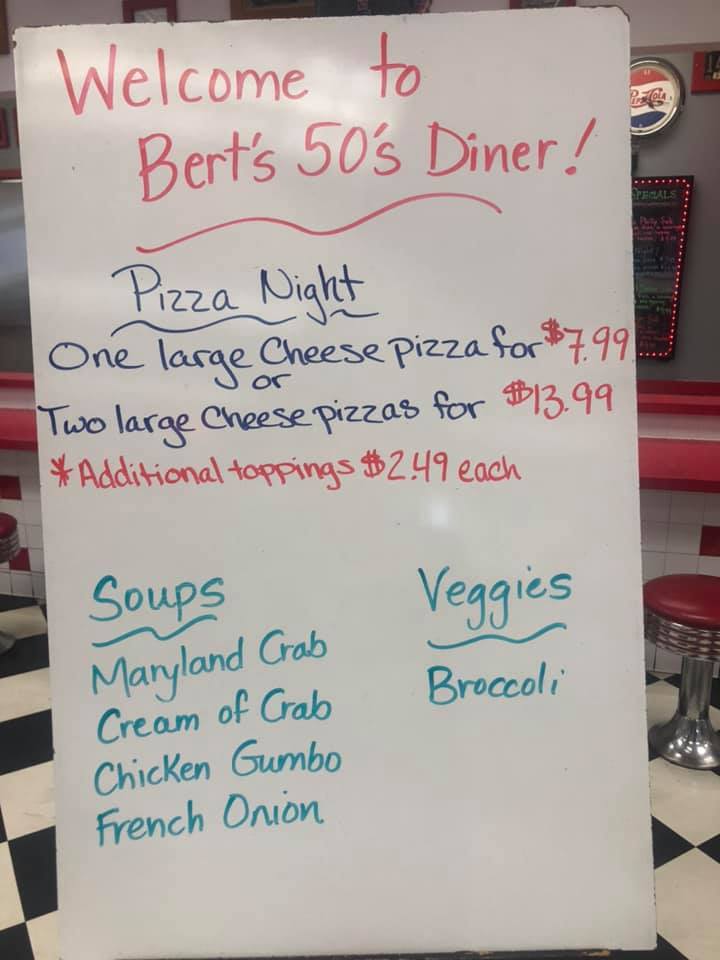 Welcome to
Bert's 50's Diner!
Pizza Night
One large Cheese pizza for $7.99
or
Two large Cheese pizzas for $13.99
*Additional toppings $2.49 each
Soups
Maryland Crab
Cream of Crab
Chicken Gumbo
French Onion
Veggies
Broccoli
PEPSI-COLA
SPECIALS